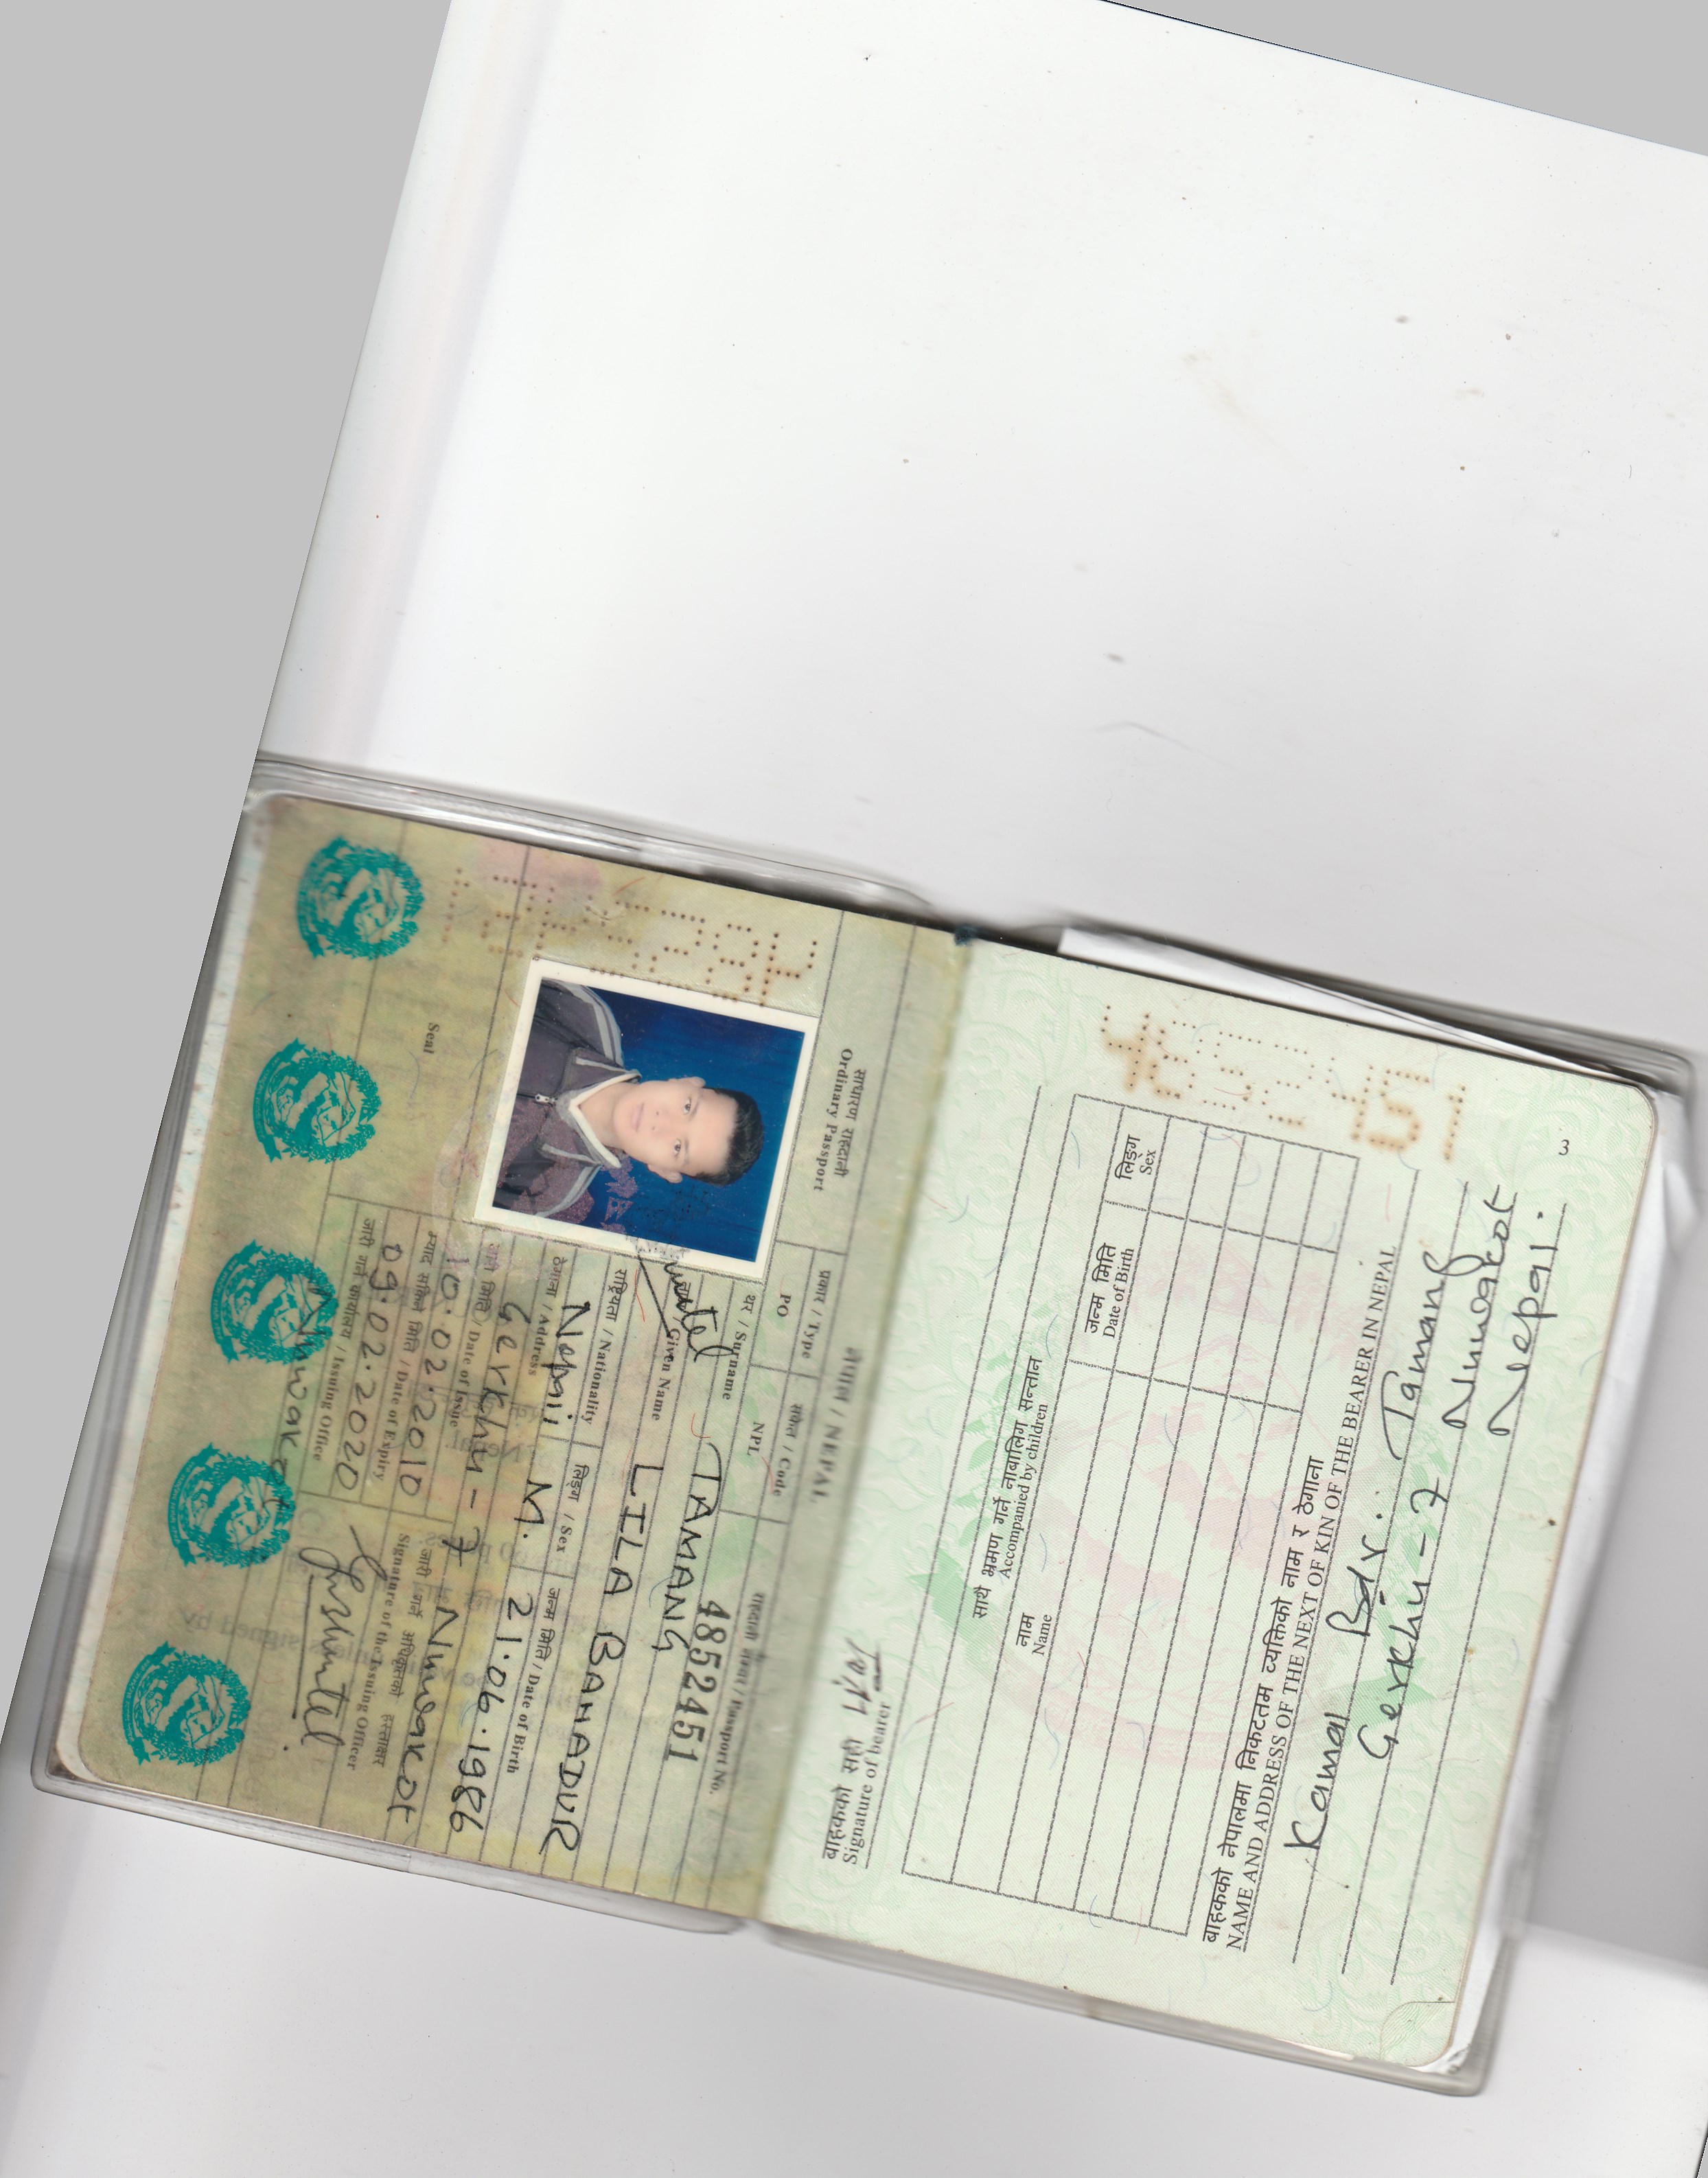 नेपाल / NEPAL
साधारण राहदानी
Ordinary Passport
प्रकार / Type
PO
संकेत / Code
NPL
राहदानी नम्बर / Passport No.
4852451
थर / Surname
TAMANG
नाम / Given Name
LILA BAHADUR
राष्ट्रियता / Nationality
Nepali
लिङ्ग / Sex
M.
जन्म मिति / Date of Birth
21.06.1986
ठेगाना / Address
Gerkhu - 7 Nuwakot
जारी मिति / Date of Issue
10.02.2010
म्याद सकिने मिति / Date of Expiry
09.02.2020
जारी गर्ने कार्यालय / Issuing Office
Nuwakot
जारी गर्ने अधिकृतको हस्ताक्षर
Signature of the Issuing Officer
Seal
बाहकको सही
Signature of bearer
साथै भ्रमण गर्ने नाबालिग सन्तान
Accompanied by children
नाम
Name
जन्म मिति
Date of Birth
लिङ्ग
Sex
बाहकको नेपालमा निकटतम व्यक्तिको नाम र ठेगाना
NAME AND ADDRESS OF THE NEXT OF KIN OF THE BEARER IN NEPAL
Kamal Bdr. Tamang
Gerkhu - 7 Nuwakot
Nepal.
3